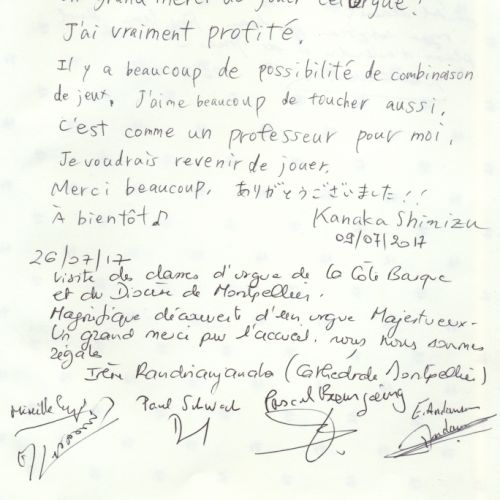 un grand merci de jouer cet orgue!
J'ai vraiment profité.
Il y a beaucoup de possibilité de combinaison
de jeux, J'aime beaucoup de toucher aussi,
C'est comme un professeur pour moi,
Je voudrais revenir de jouer.
Merci beaucoup. ありがとうございました!!
À bientôt♪ Kanaka Shimizu
09/07/2017
26/07/17
Visite des classes d'orgue de la Côte Basque
et du Diocèse de Montpellier.
Magnifique découverte d'un orgue Majestueux.
Un grand merci pour l'accueil, nous nous sommes
régalés
(Cathédrale Montpellier)
Mireille Paul Pascal